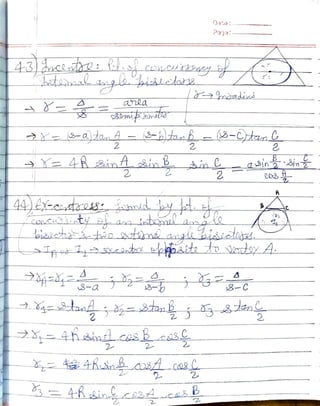 Date:
Page:
43) Incentre: Pt. of concurrency of
internal angle bisectors
r → Inradius
→ r = Δ/s = area/semiperimeter
→ r = (s-a) tan A/2 = (s-b) tan B/2 = (s-c) tan C/2
→ r = 4R sin A/2 sin B/2 sin C/2 = a sin B/2 · sin C/2 / cos A/2
44) Ex-centres: formed by pt. of
concurrenty of an internal angle
bisector & two external angle bisectors
→ I_A or I_1 → excentre opposite to vertex A.
→ r_A = r_1 = Δ/s-a ; r_2 = Δ/s-b ; r_3 = Δ/s-c
→ r_1 = s tan A/2 ; r_2 = s tan B/2 ; r_3 = s tan C/2
→ r_1 = 4R sin A/2 cos B/2 cos C/2
r_2 = 4R sin B/2 cos A/2 cos C/2
r_3 = 4R sin C/2 cos A/2 cos B/2